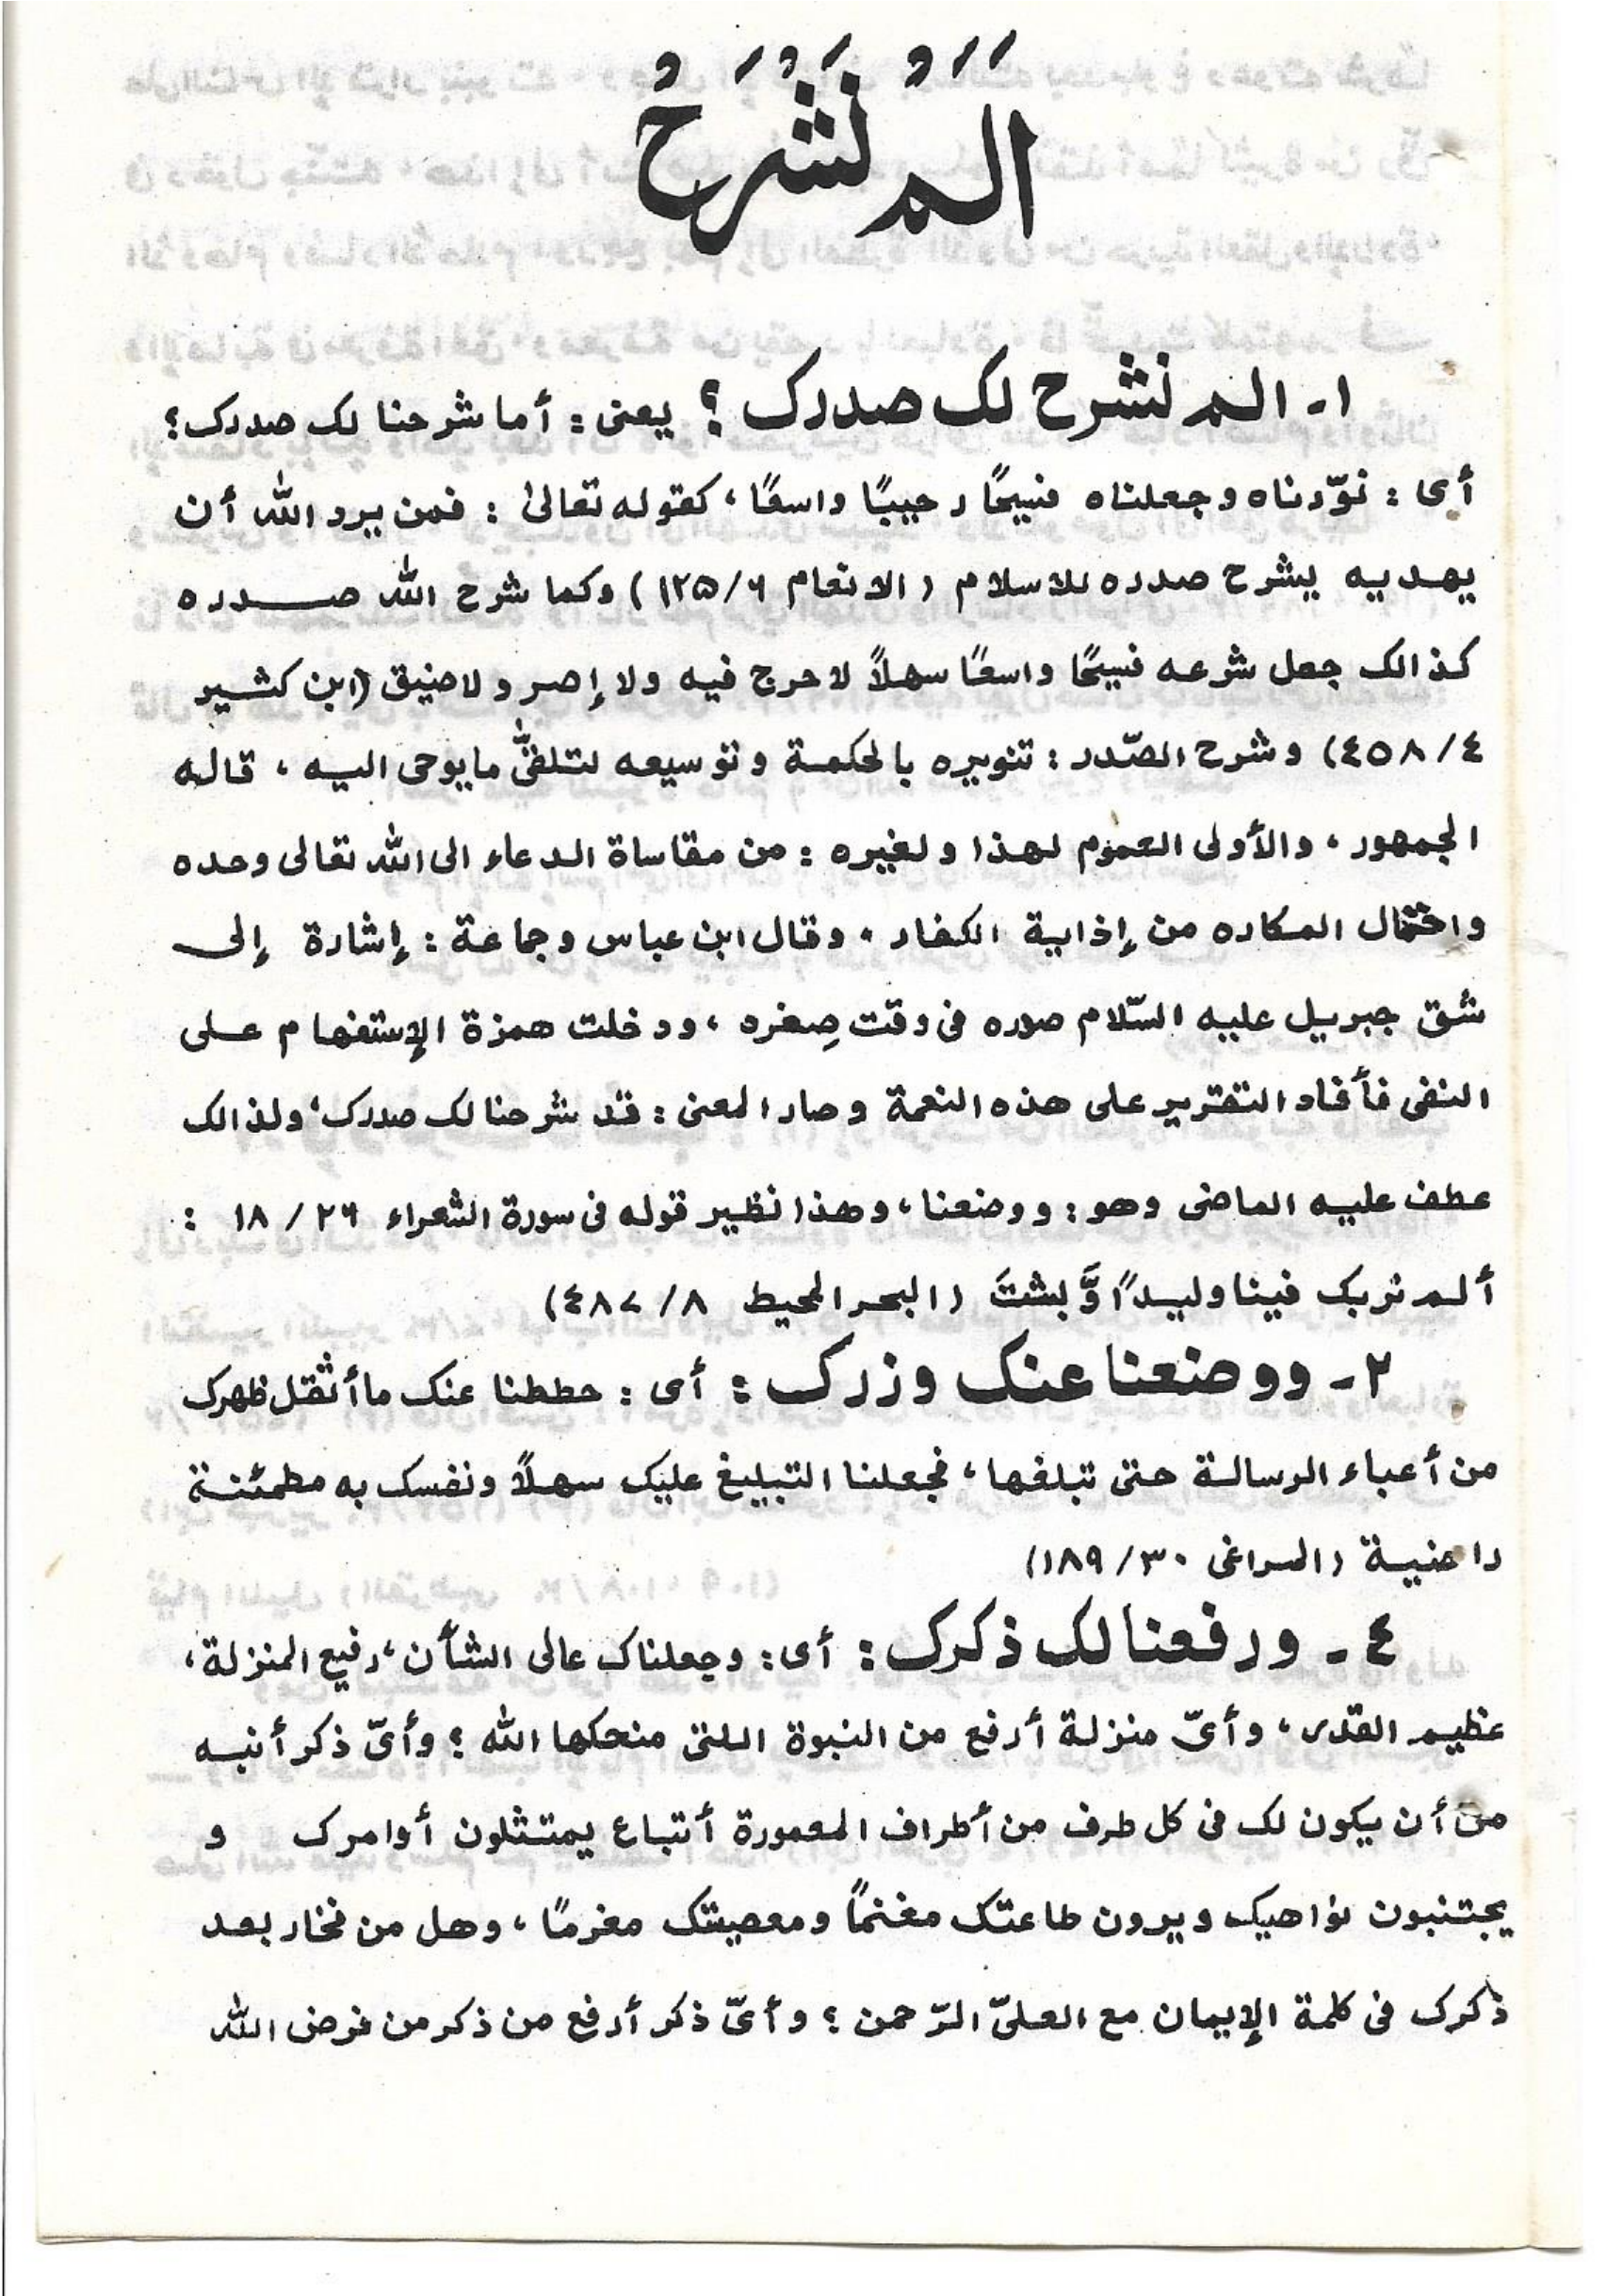 اَلَمْ نَشْرَحْ
١ـ الم نشرح لک صدرک ؟ یعنی : أما شرحنا لک صدرک ؟
أی : نوّرناه وجعلناه فسیحًا رحیبًا واسعًا ، کقوله تعالیٰ : فمن یرد الله أن
یهدیه یشرح صدره للاسلام ( الانعام ١٢٥/٦ ) وکما شرح الله صدره
کذالک جعل شرعه فسیحًا واسعًا سهلاً لاحرج فیه ولا إصر ولاضیق (ابن کثیر
٤٥٨/٤) وشرح الصّدر : تنویره بالحکمة وتوسیعه لتلقّی مایوحی الیه ، قاله
الجمهور ، والأولی العموم لهذا ولغیره : من مقاساة الدعاء الی الله تعالی وحده
واحتمال المکاره من إذایة الکفار ، وقال ابن عباس وجماعة : إشارة إلی
شق جبریل علیه السّلام صدره فی وقت صِغره ، ودخلت همزة الإستفهام علی
النفی فأفاد التقریر علی هذه النعمة وصار المعنی : قد شرحنا لک صدرک ، ولذالک
عطف علیه الماضی وهو : ووضعنا ، وهذا نظیر قوله فی سورة الشعراء ٢٦ / ١٨ :
ألم نربک فینا ولیدًا وَّلبثتَ ( البحر المحیط ٨ / ٤٨٧)
٢ـ ووضعنا عنک وزرک : أی : حططنا عنک ما أثقل ظهرک
من أعباء الرسالة حتی تبلغها ، فجعلنا التبلیغ علیک سهلاً ونفسک به مطمئنة
راضیة ( المراغی ٣٠ /١٨٩)
٤ـ ورفعنا لک ذکرک : أی : وجعلناک عالی الشأن ، رفیع المنزلة ،
عظیم القدر ، وأیّ منزلة أرفع من النبوة اللتی منحکها الله ؟ وأیّ ذکر أنبه
من أن یکون لک فی کل طرف من أطراف المعمورة أتباع یمتثلون أوامرک و
یجتنبون نواهیک ویرون طاعتک مغنمًا ومعصیتک مغرمًا ، وهل من فخار بعد
ذکرک فی کلمة الإیمان مع العلیّ الرّحمن ؟ وأیّ ذکر أرفع من ذکر من فرض الله